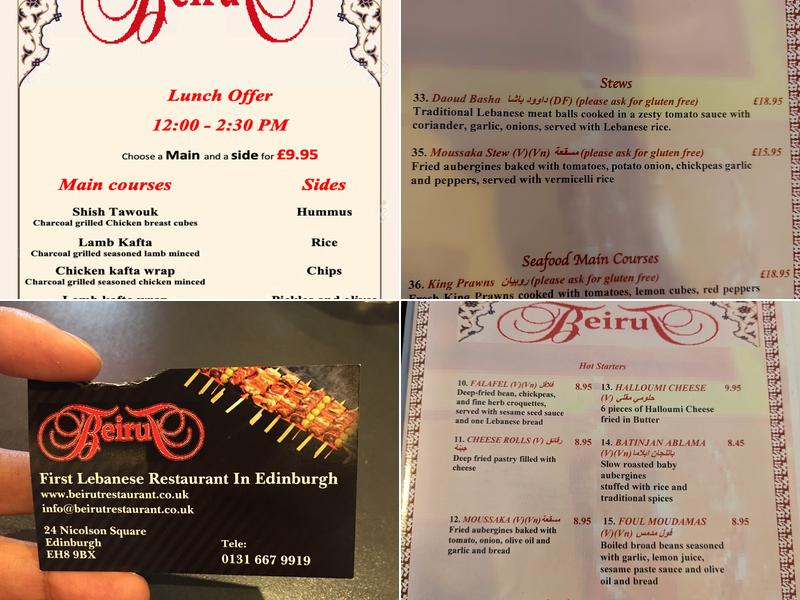 Beirut
Lunch Offer
12:00 - 2:30 PM
Choose a Main and a side for £9.95
Main courses
Sides
Shish Tawouk
Charcoal grilled Chicken breast cubes
Hummus
Lamb Kafta
Charcoal grilled seasoned lamb minced
Rice
Chicken kafta wrap
Charcoal grilled seasoned chicken minced
Chips
Lamb kafta wrap
Pickles and olives
Stews
33. Daoud Basha داوود باشا (DF) (please ask for gluten free) £18.95
Traditional Lebanese meat balls cooked in a zesty tomato sauce with
coriander, garlic, onions, served with Lebanese rice.
35. Moussaka Stew (V)(Vn) مسقعة (please ask for gluten free) £15.95
Fried aubergines baked with tomatoes, potato onion, chickpeas garlic
and peppers, served with vermicelli rice
Seafood Main Courses
36. King Prawns روبيان (please ask for gluten free) £18.95
Fresh King Prawns cooked with tomatoes, lemon cubes, red peppers
Beirut
First Lebanese Restaurant In Edinburgh
www.beirutrestaurant.co.uk
info@beirutrestaurant.co.uk
24 Nicolson Square
Edinburgh
EH8 9BX
Tele:
0131 667 9919
Beirut
Hot Starters
10. FALAFEL (V)(Vn) فلافل 8.95
Deep-fried bean, chickpeas,
and fine herb croquettes,
served with sesame seed sauce
and one Lebanese bread
11. CHEESE ROLLS (V) رقائق 8.95
جبنة
Deep fried pastry filled with
cheese
12. MOUSSAKA (V)(Vn) مسقعة 8.95
Fried aubergines baked with
tomato, onion, olive oil and
garlic and bread
13. HALLOUMI CHEESE 9.95
(V) حلومي مقلي
6 pieces of Halloumi Cheese
fried in Butter
14. BATINJAN ABLAMA 8.45
(V)(Vn) باتنجان ابلاما
Slow roasted baby
aubergines
stuffed with rice and
traditional spices
15. FOUL MOUDAMAS 8.95
(V)(Vn) فول مدمس
Boiled broad beans seasoned
with garlic, lemon juice,
sesame paste sauce and olive
oil and bread